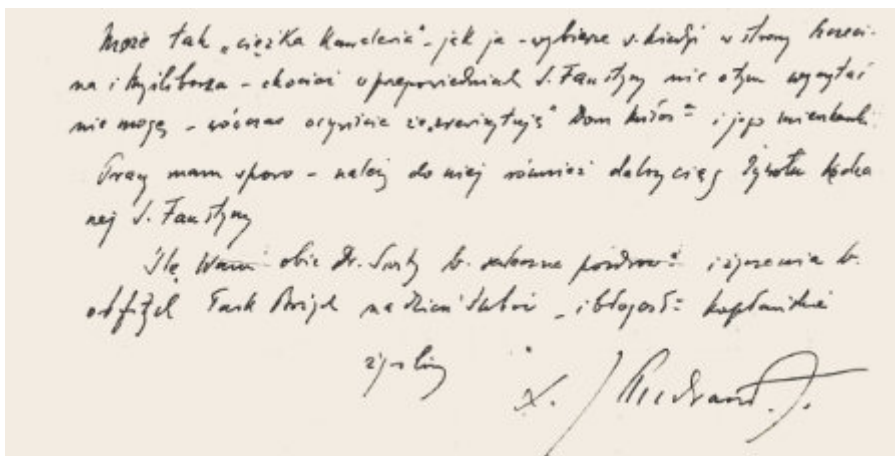 Może tak „ciężka kawaleria" – jak ja – wybierze s. kiedyś w strony Szczeci-
na i Myśliborza – chociaż w przepowiedniach S. Faustyny nic o tym wyczytać
nie mogę – wówczas oczywiście że „zwizytuję" Dom Miłos= i jego mieszkanki
Pracy mam sporo – należy do niej również dalszy ciąg żywotu
nej S. Faustyny
Ślę Wam obie Dr. Siostry b. serdeczne pozdrow= i życzenia b.
obfitych Łask Bożych na dzień ślubów – i błogosł= kapłańskie
życzliwy
X. J